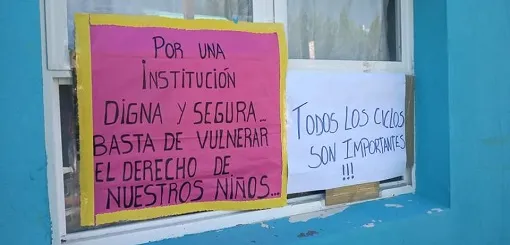 POR UNA
INSTITUCIÓN
DIGNA Y SEGURA...
BASTA DE VULNERAR
EL DERECHO DE
NUESTROS NIÑOS...
TODOS LOS CICLOS
SON IMPORTANTES
!!!